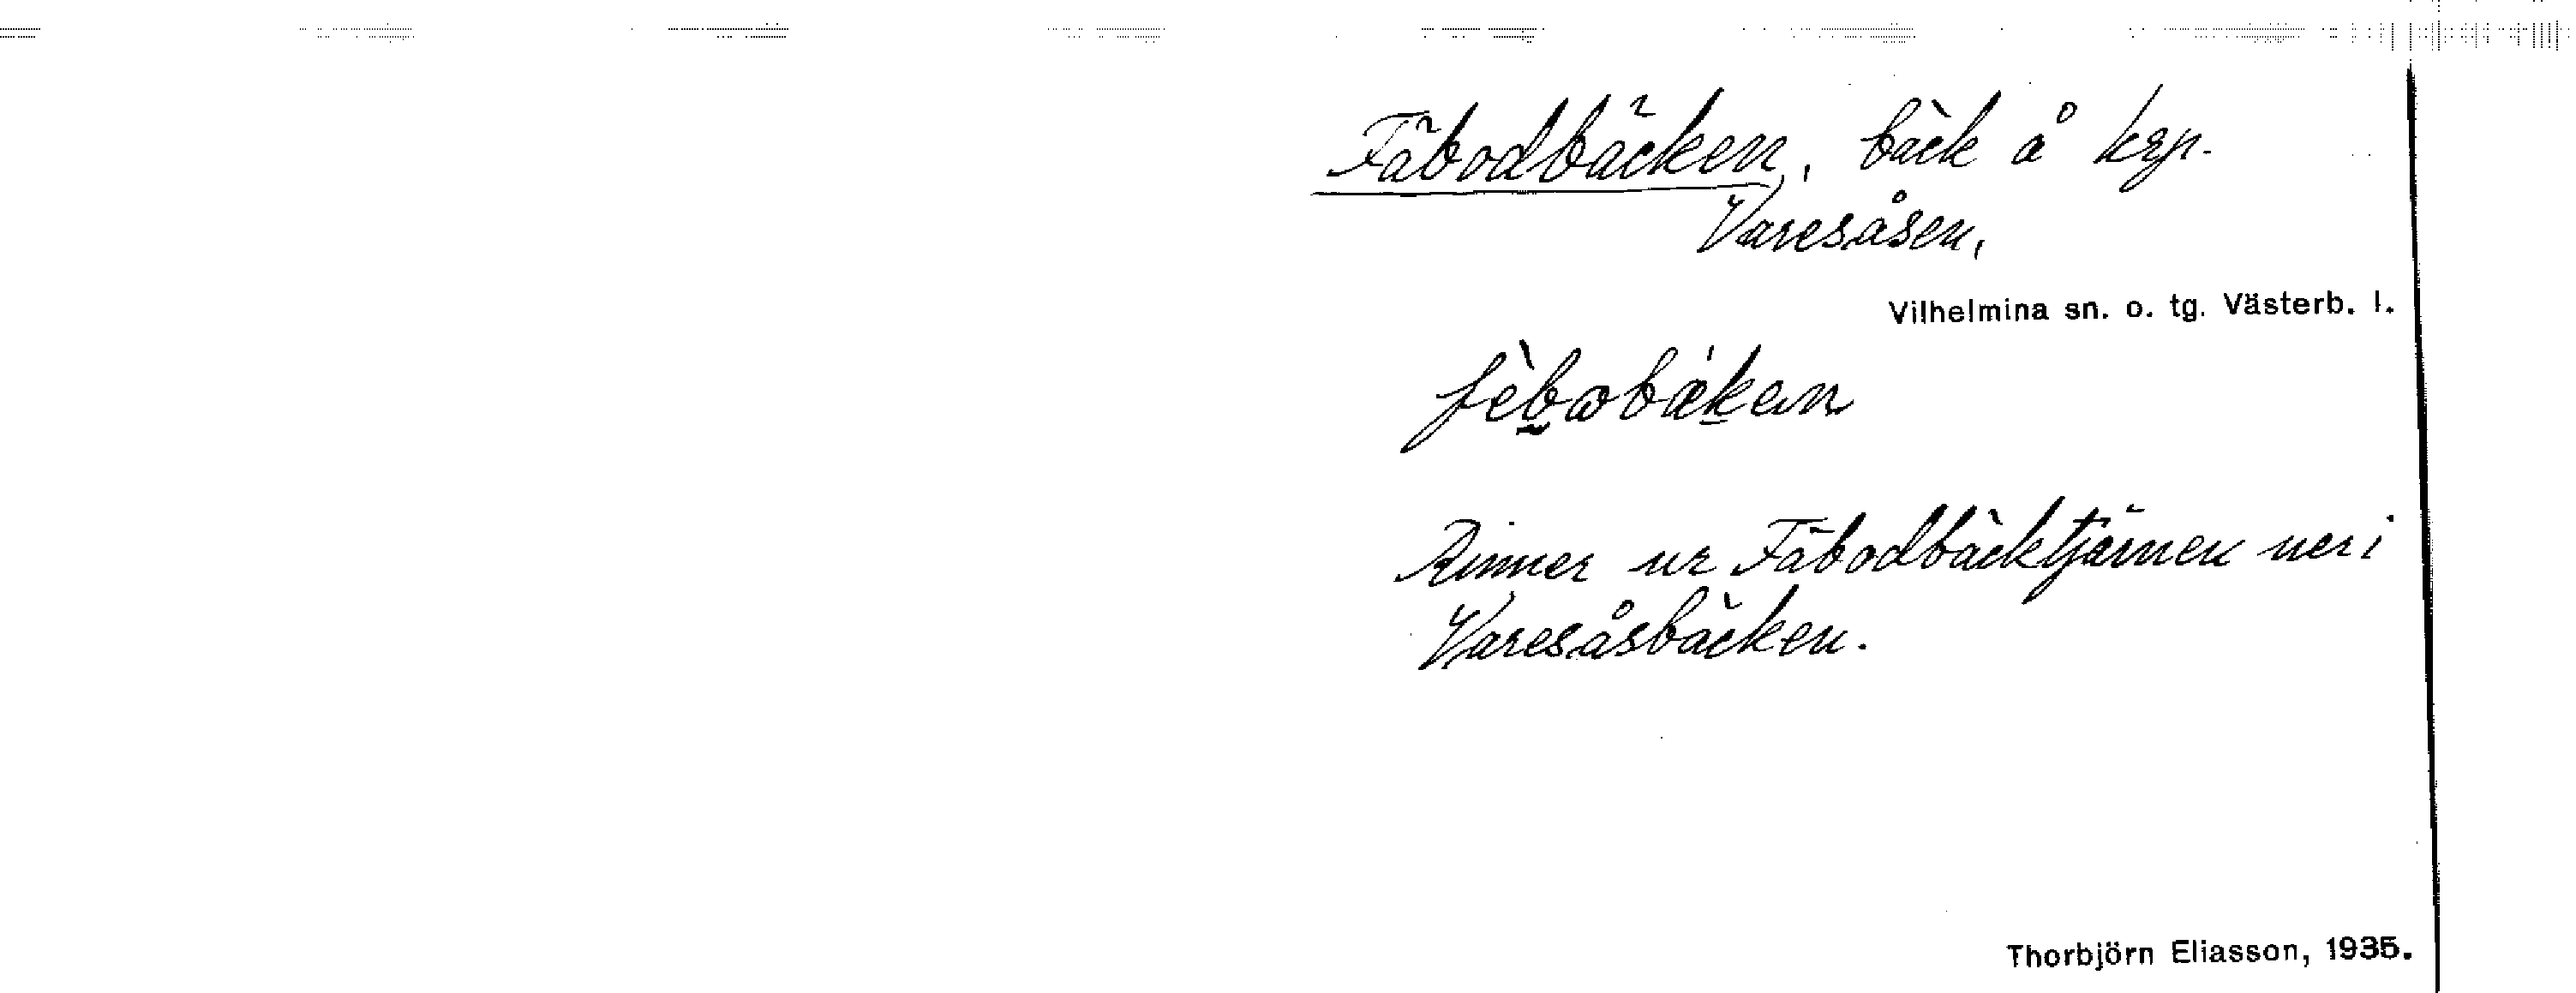 Fäbodbäcken, bäck å krp.
Varesåsen,
Vilhelmina sn. o. tg. Västerb. l.
fèbωbækan
Rinner ur Fäbodbäcktjärnen ner i
Varesåsbäcken.
Thorbjörn Eliasson, 1935.